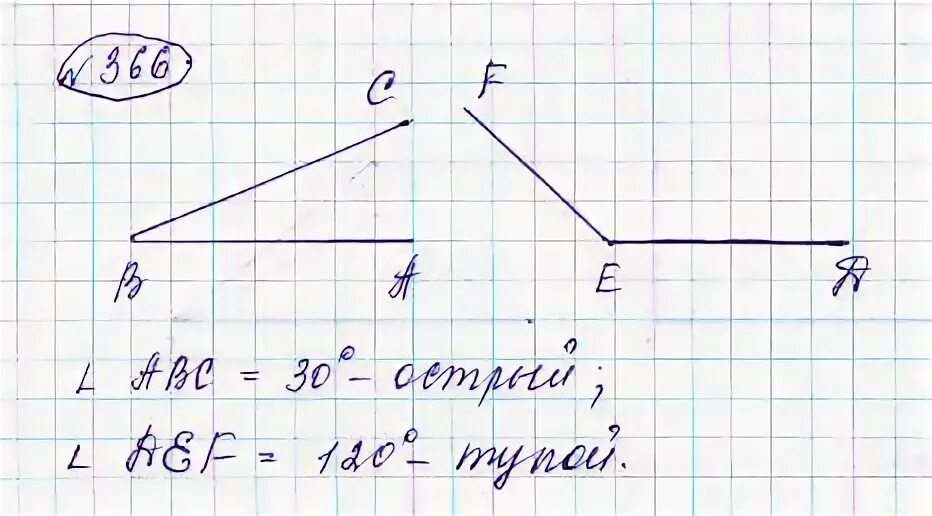 № 366
C F
B A E D
∠ ABC = 30° – острый;
∠ DEF = 120° – тупой.